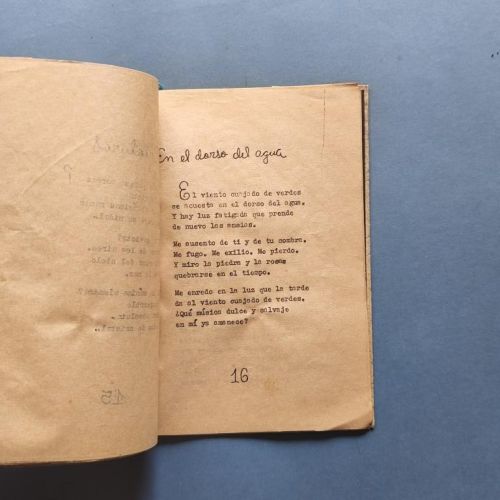 En el dorso del agua
El viento cuajado de verdes
se acuesta en el dorso del agua.
Y hay luz fatigada que prende
de nuevo las ansias.
Me ausento de ti y de tu sombra.
Me fugo. Me exilio. Me pierdo.
Y miro la piedra y la rosa
quebrarse en el tiempo.
Me enredo en la luz que la tarde
da al viento cuajado de verdes.
¿Qué música dulce y salvaje
en mí ya amanece?
16
15